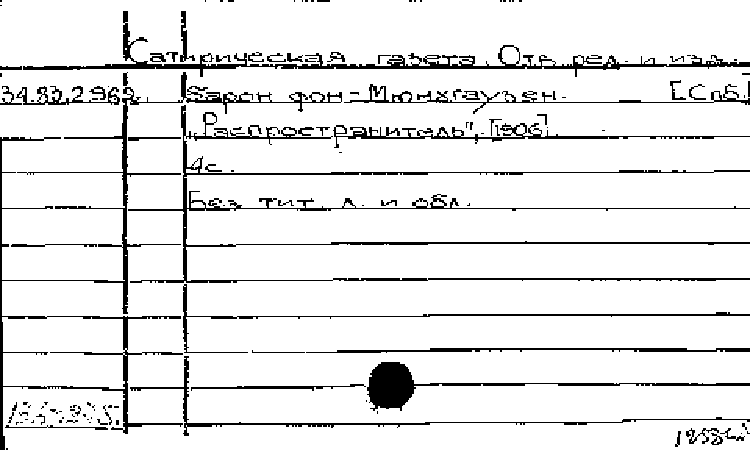 Сатирическая газета. Отв. ред. и изд.
34.83.2.962. Барон фон-Мюнхгаузен. [Спб.]
„Распространитель", [1906].
4с.
Без тит. л. и обл.